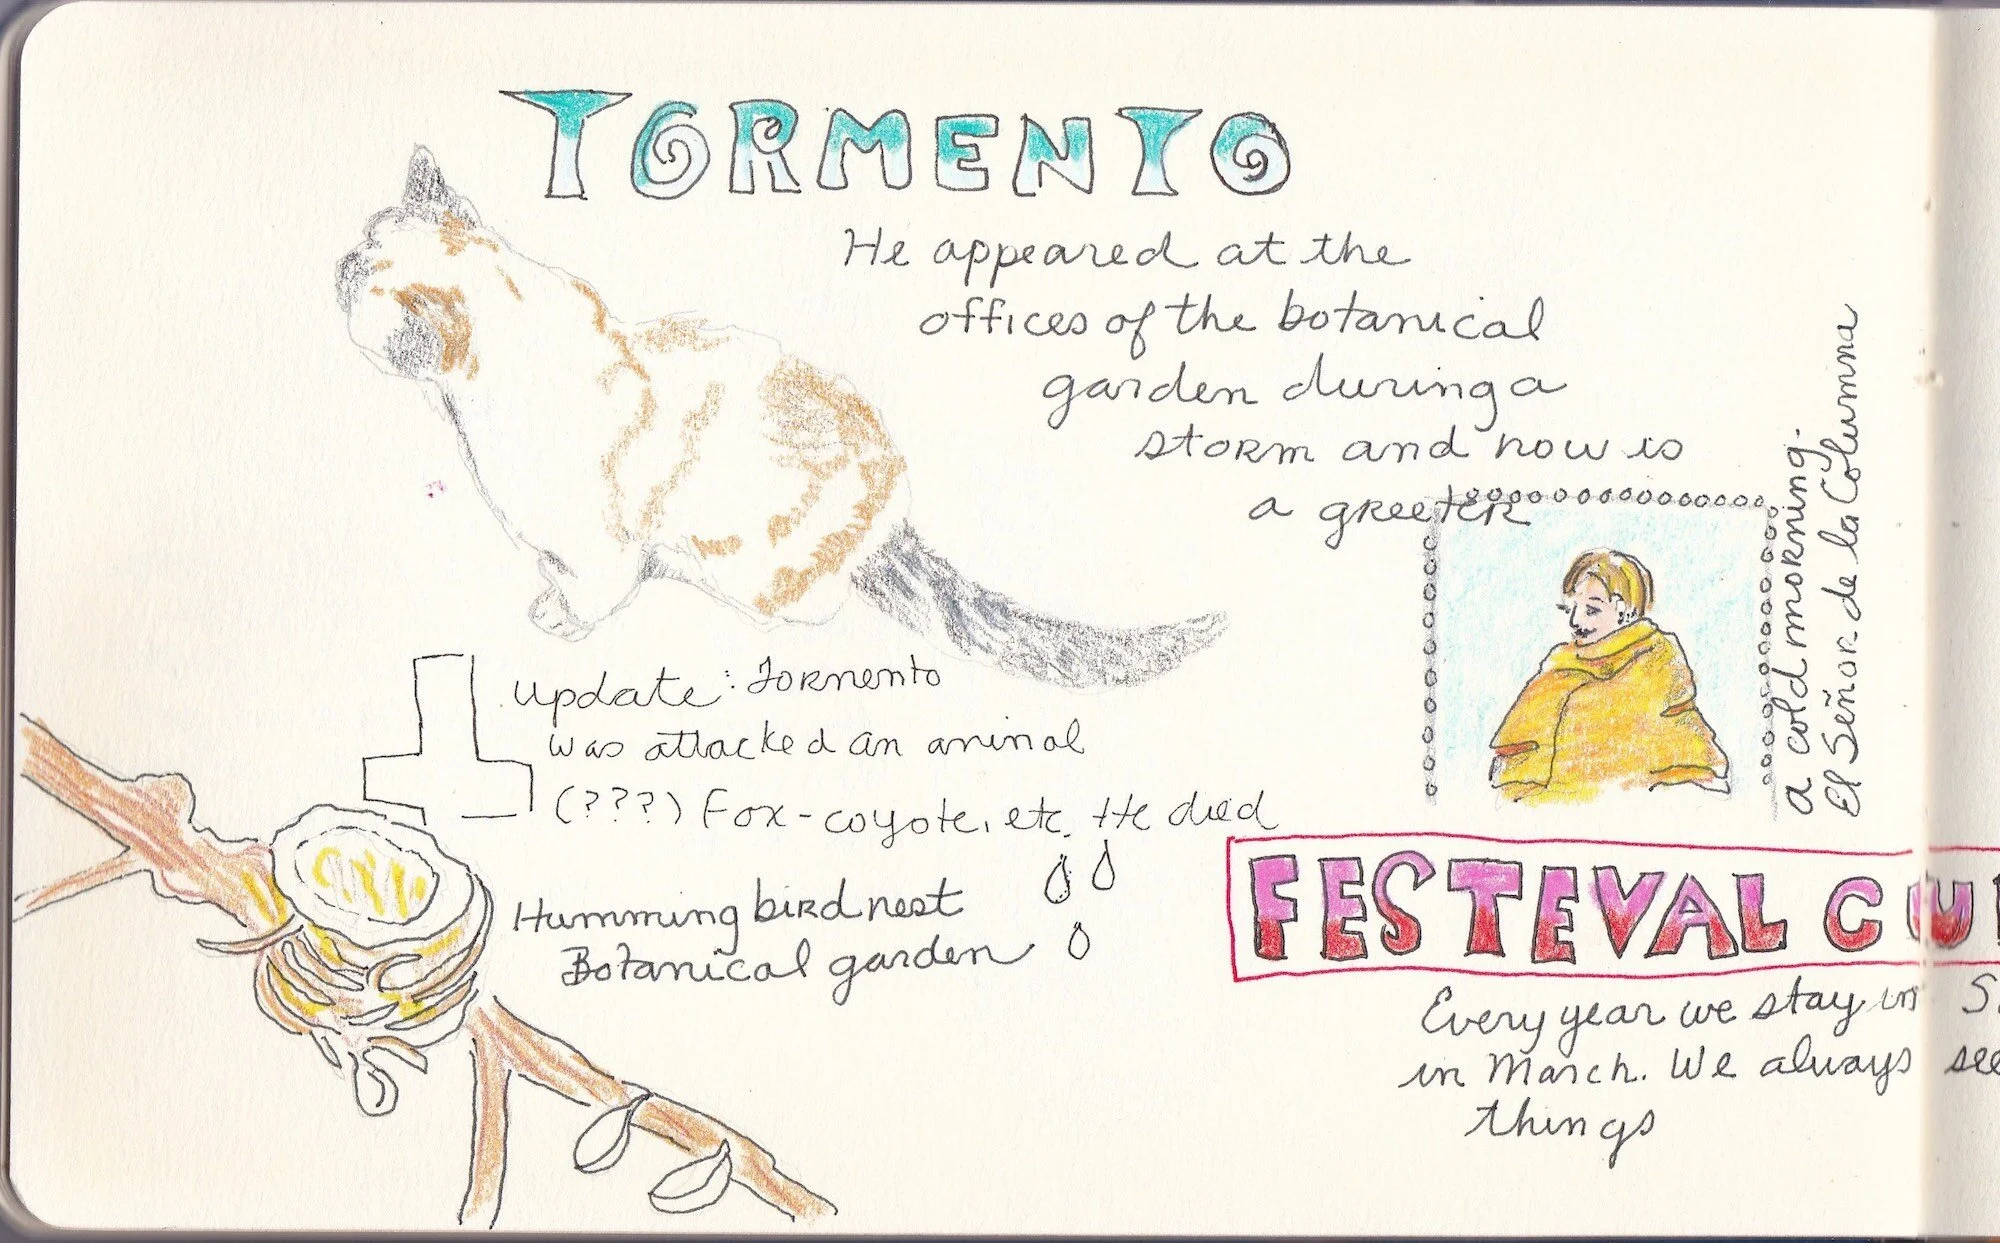 TORMENTO
He appeared at the
offices of the botanical
garden during a
storm and now is
a greeter
a cold morning.
El Señor de la Columna
update: Tormento
was attacked an aninal
(???) Fox-coyote, etc. He died
Humming bird nest
Botanical garden
FESTEVAL CU
Every year we stay in S
in March. We always see
things